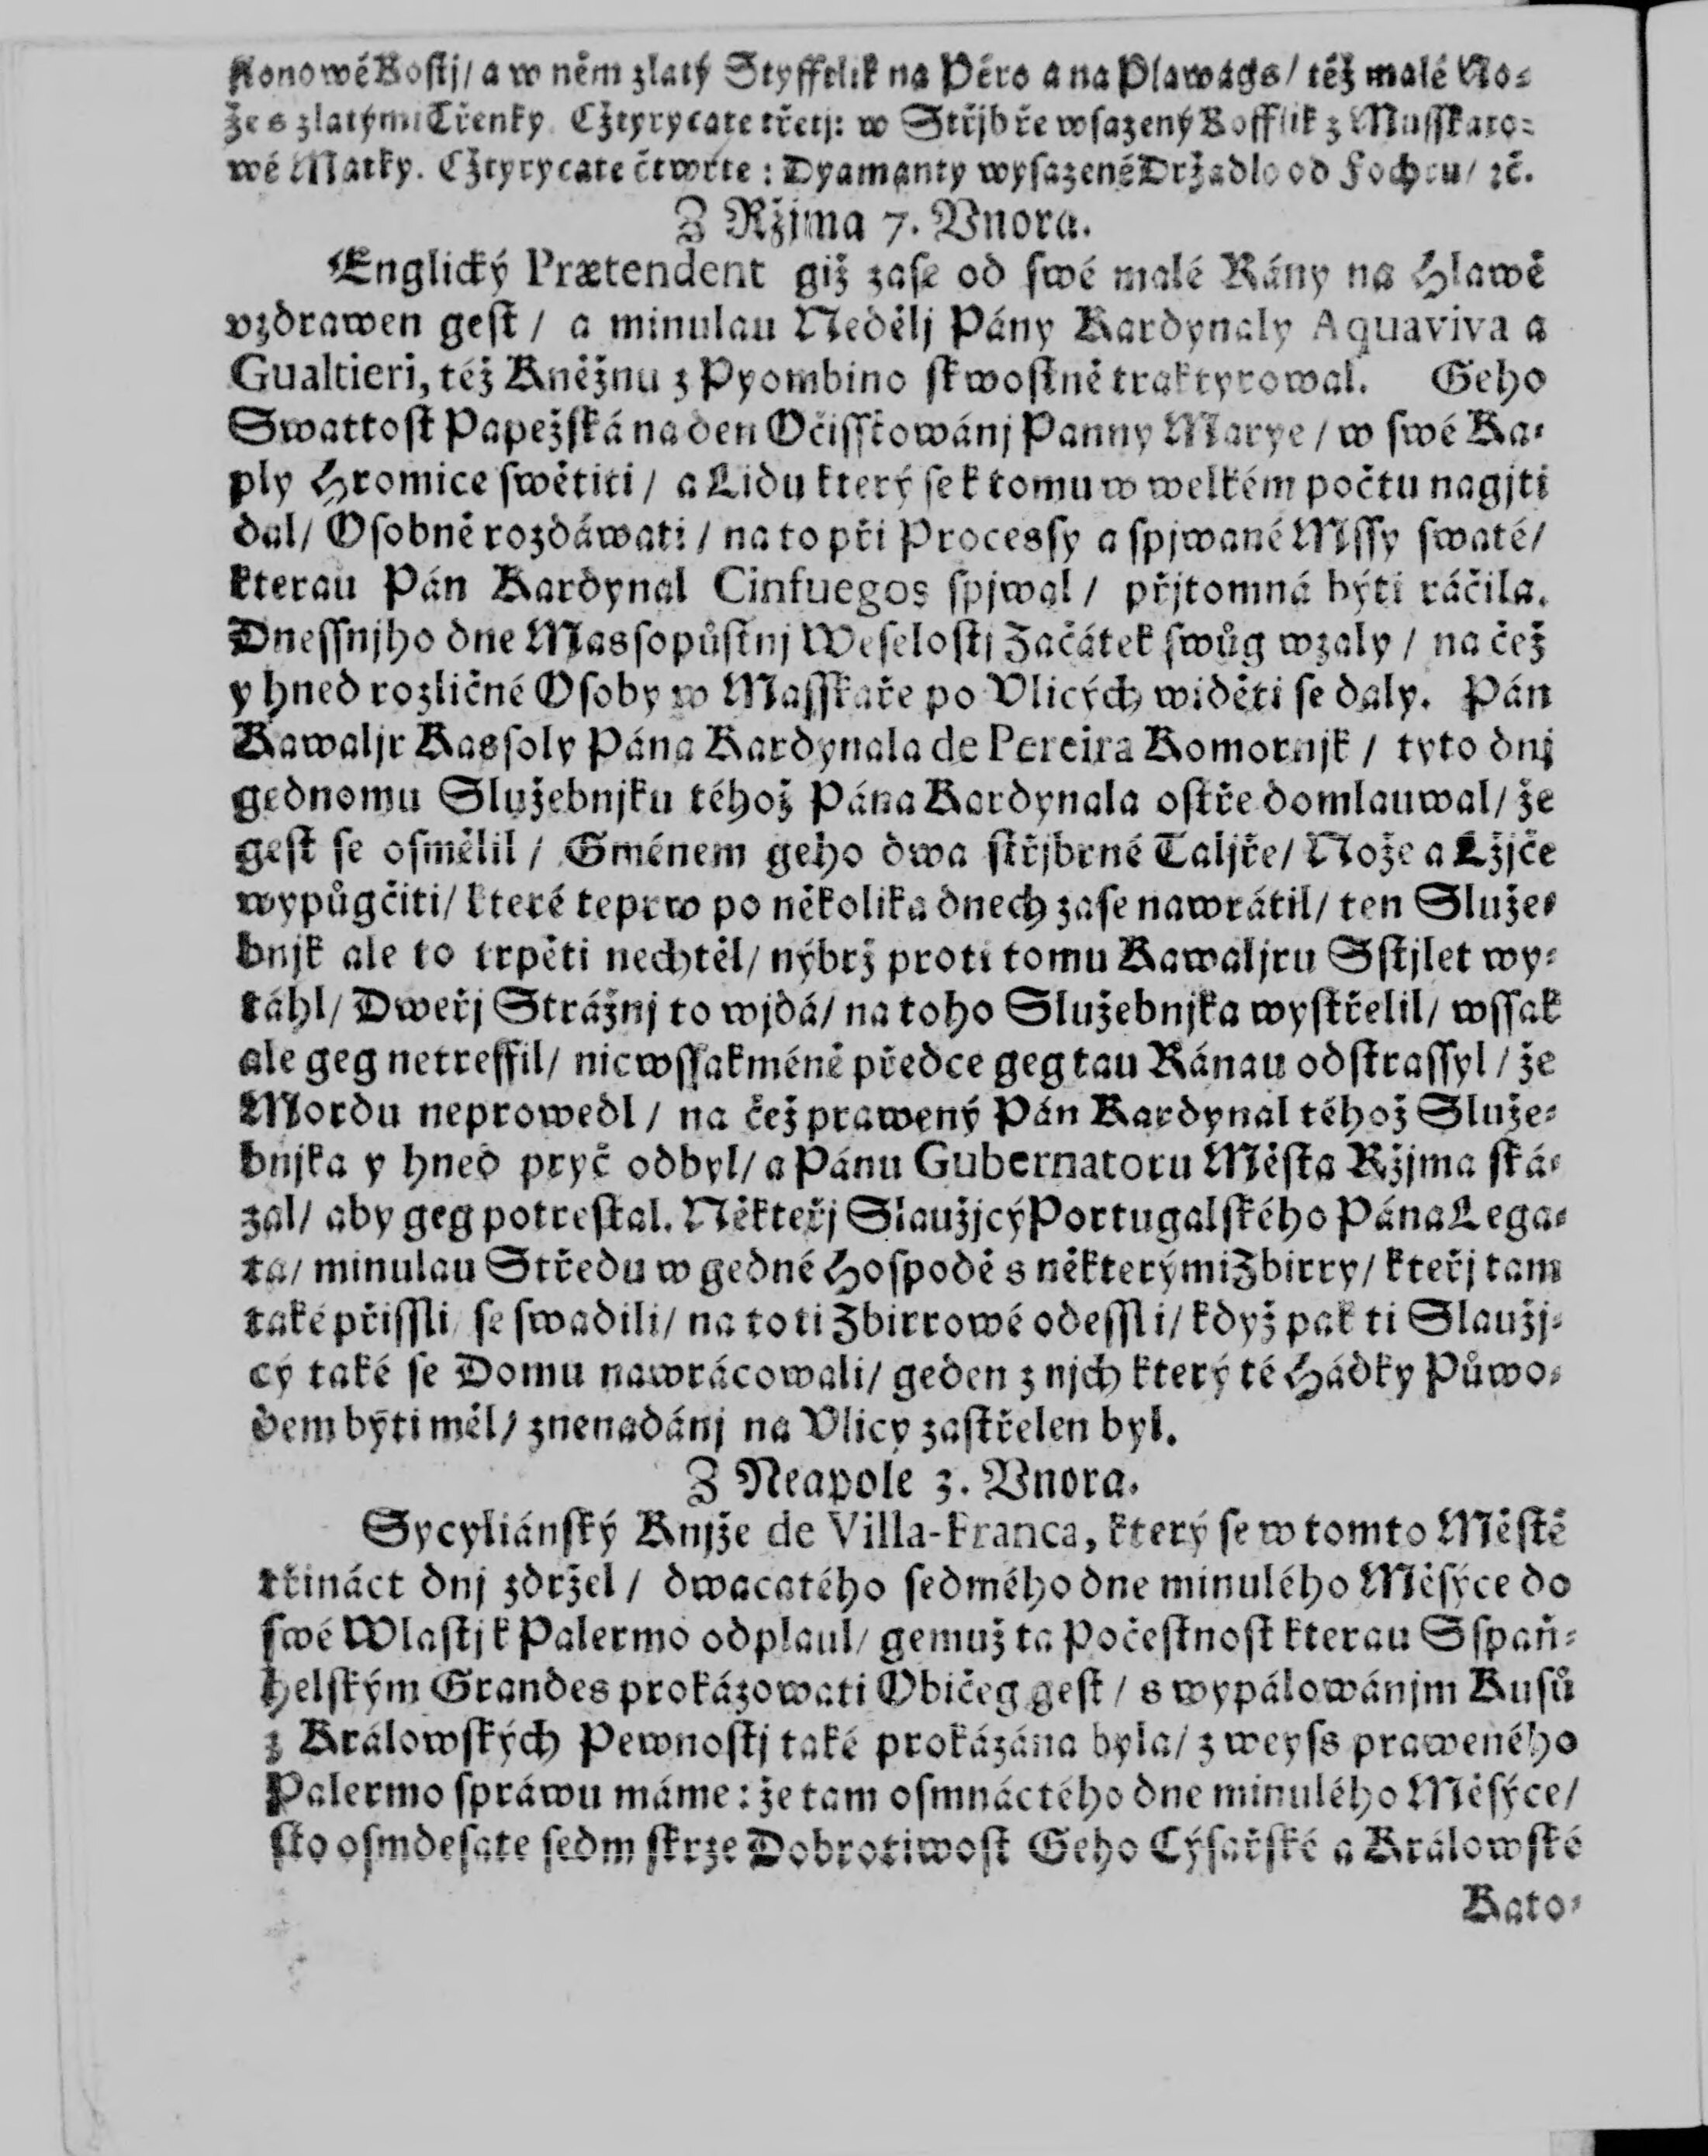 konowé Kostj/ a w něm zlatý Styfflik na Péro a na Plawágs/ též malé No⸗
že s zlatými Třenky. Cžtyrycate třetj: w Střjbře wsazený Kofflik z Musskato⸗
wé Matky. Cžtyrycate čtwrte: Dyamanty wysazené Držadlo od Fochru/ ꝛč.
Z Ržjma 7. Vnora.
Englický Prætendent giž zase od swé malé Rány na Hlawě
vzdrawen gest / a minulau Nedělj Pány Kardynaly Aquaviva a
Gualtieri, též Kněžnu z Pyombino skwostně traktyrowal. Geho
Swattost Papežská na den Očissťowánj Panny Marye / w swé Ka⸗
ply Hromice swětiti / a Lidu který se k tomu w welkém počtu nagjti
dal/ Osobně rozdáwati / na to při Processy a spjwané Mssy swaté/
kterau Pán Kardynal Cinfuegos spjwal / přjtomná býti ráčila.
Dnessnjho dne Massopůstnj Weselosti Začátek swůg wzaly / na čež
y hned rozličné Osoby w Masskaře po Vlicých widěti se daly. Pán
Kawaljr Kassoly Pána Kardynala de Pereira Komornjk / tyto dnj
gednomu Služebnjku téhož Pána Kardynala ostře domlauwal/ že
gest se osmělil / Gménem geho dwa střjbrné Taljře/ Nože a Lžjče
wypůgčiti/ které teprw po několika dnech zase nawrátil/ ten Služe⸗
bnjk ale to trpěti nechtěl/ nýbrž proti tomu Kawaljru Sstjlet wy⸗
táhl/ Dweřj Strážnj to wjdá/ na toho Služebnjka wystřelil/ wssak
ale geg netreffil/ nicwssakméně předce geg tau Ránau odstrassyl / že
Mordu neprowedl / na čež prawený Pán Kardynal téhož Služe⸗
bnjka y hned pryč odbyl/ a Pánu Gubernatoru Města Ržjma ská⸗
zal/ aby geg potrestal. Někteřj Slaužjcý Portugalského Pána Lega⸗
ta/ minulau Středu w gedné Hospodě s některými Zbirry/ kteřj tam
také přissli/ se swadili/ na to ti Zbirrowé odessli/ když pak ti Slaužj⸗
cý také se Domu nawrácowali/ geden z njch který té Hádky Půwo⸗
dem býti měl/ znenadánj na Vlicy zastřelen byl.
Z Neapole 3. Vnora.
Sycyliánský Knjže de Villa-Franca, který se w tomto Městě
třináct dnj zdržel / dwacatého sedmého dne minulého Měsýce do
swé Wlastj k Palermo odplaul/ gemuž ta Počestnost kterau Sspaň⸗
helským Grandes prokázowati Običeg gest / s wypálowánjm Kusů
z Králowských Pewnostj také prokázána byla/ z weyss praweného
Palermo spráwu máme: že tam osmnáctého dne minulého Měsýce/
sto osmdesate sedm skrze Dobrotiwost Geho Cýsařské a Králowské
Kato⸗